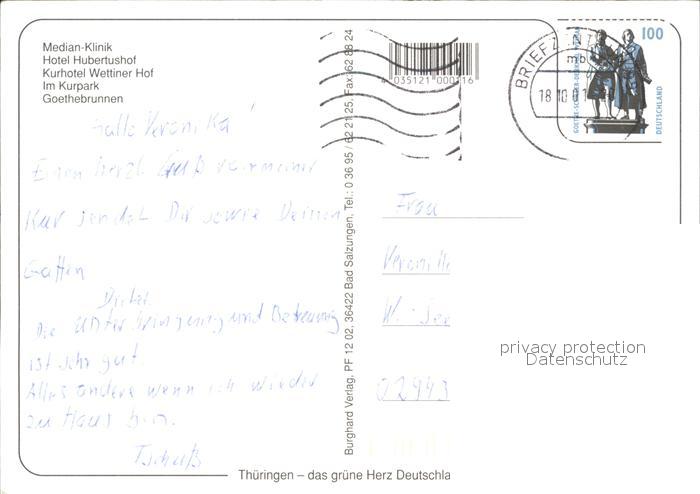 Median-Klinik
Hotel Hubertushof
Kurhotel Wettiner Hof
Im Kurpark
Goethebrunnen
Hallo Veronika!
Einen herzl. Gruß von meiner
Kur sendet Dir sowie Deinen
Gatten
Dieter.
Die Unterbringung und Betreuung
ist sehr gut.
Alles andere wenn ich wieder
zu Haus bin.
Tschuß
Burghard Verlag, PF 12 02, 36422 Bad Salzungen, Tel.: 0 36 95 / 62 21 25, Fax: 62 88 24
4 035121 000116
BRIEFZENT
mb
18.10.01
100
DEUTSCHLAND
Frau
02943
privacy protection
Datenschutz
Thüringen – das grüne Herz Deutschla